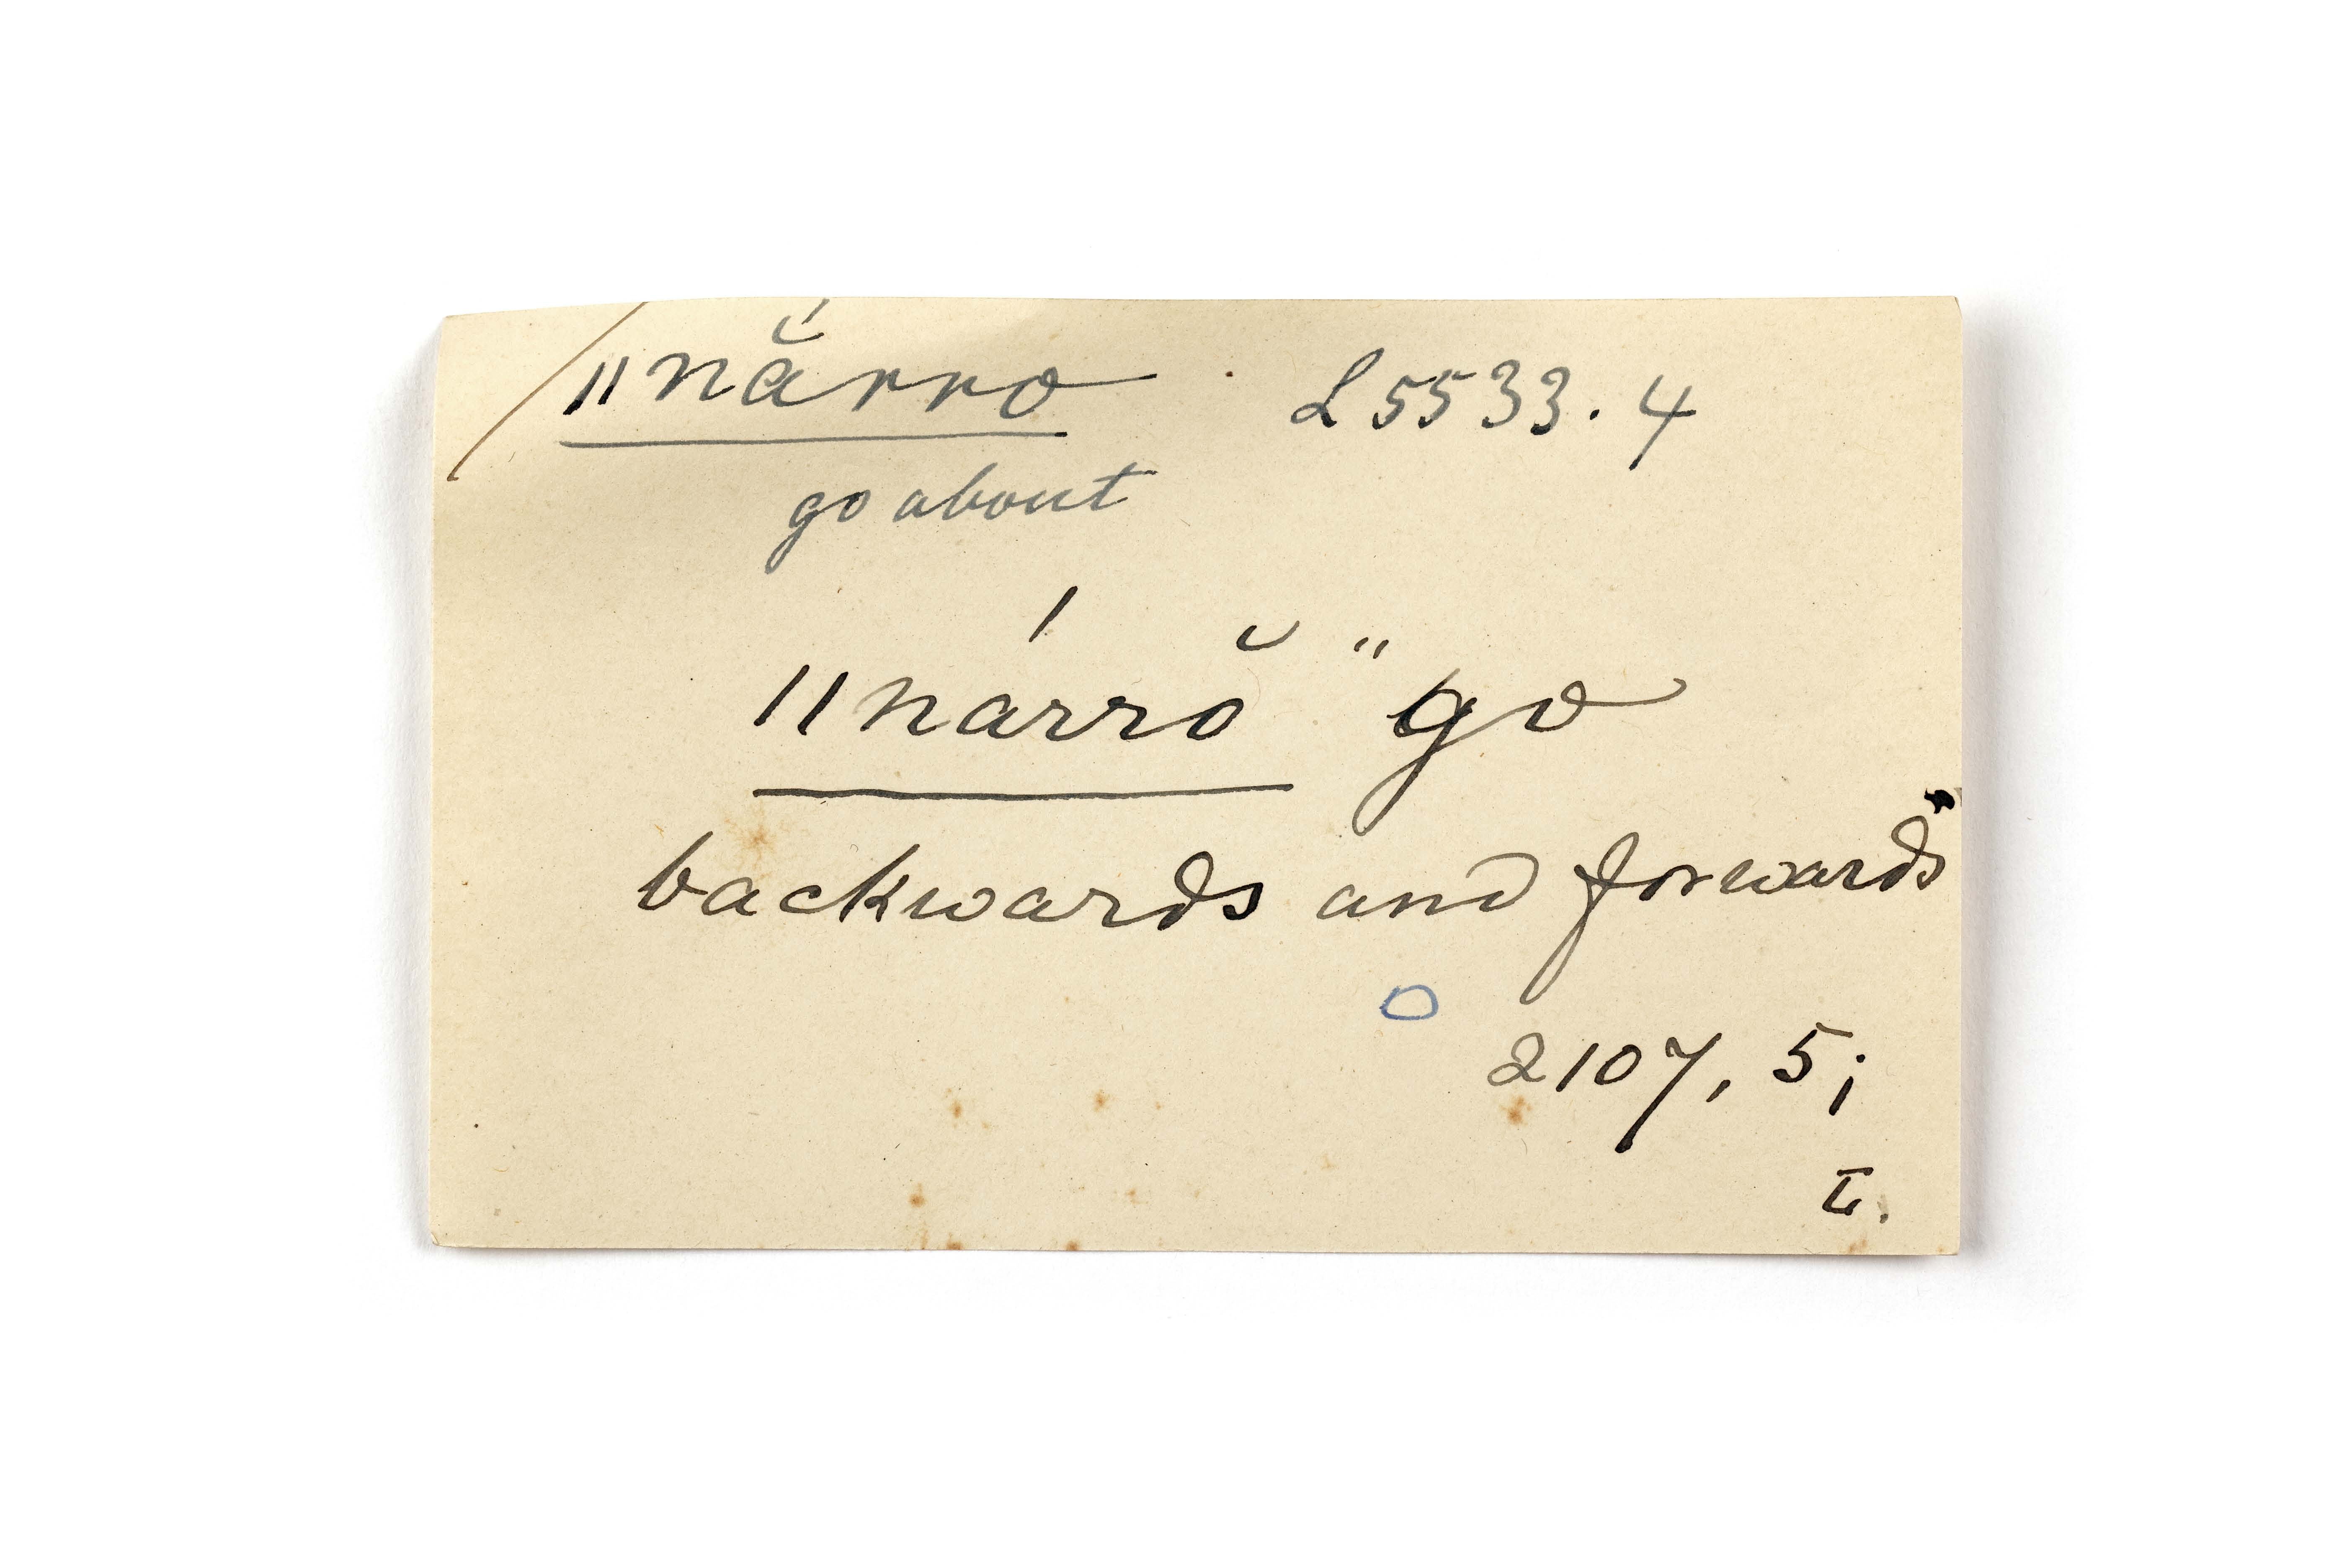 ǁnā̆́rro . L 5533. 4
go about
ǁnárrŏ "go
backwards and forwards"
2107, 5;